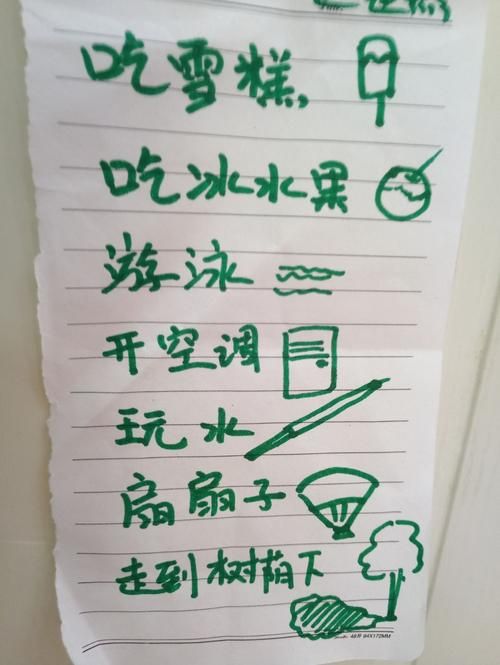 吃雪糕
吃冰水果
游泳
开空调
玩水
扇扇子
走到树荫下
48开 94X172MM